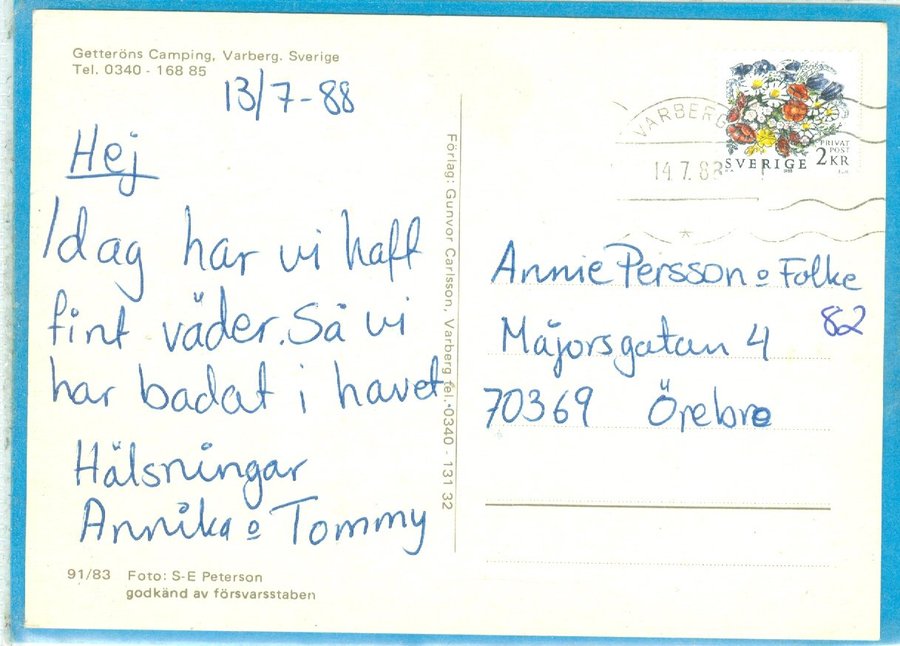 Getteröns Camping, Varberg. Sverige
Tel. 0340 - 168 85
13/7-88
Hej
Idag har vi haft
fint väder. Så vi
har badat i havet
Hälsningar
Annika o Tommy
91/83 Foto: S-E Peterson
godkänd av försvarsstaben
Förlag: Gunvor Carlsson, Varberg tel. 0340 - 131 32
VARBERG
14.7.88
PRIVAT
POST
SVERIGE 2KR
Annie Persson o Folke
82
Majorsgatan 4
70369 Örebro